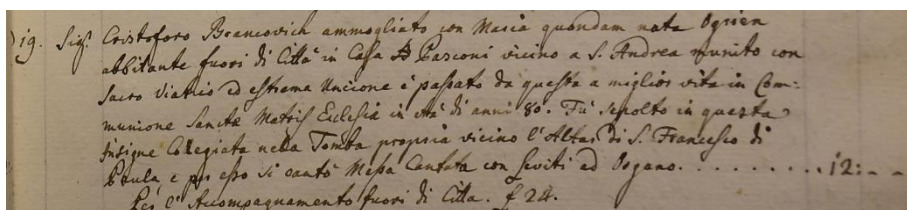 19. Sigr. Cristoforo Brancovich ammogliato con Maria quondam nata Ognien
abbitante fuori di Città in Casa Pasconi vicino a S. Andrea munito con
Sacro Viatico ed estrema Uncione è passato da questa a miglior vita in Com:
munione Sanctæ Matris Eclesiæ in età di anni 80. Fù sepolto in questa
Insigne Colegiata nella Tomba propria vicino l'Altar di S. Francesco di
Paula e per esso si cantò Messa Cantata con Leviti ed Organo. . . . . . . . . . 12: - -
Per l'Accompagnamento fuori di Citta. f 24.